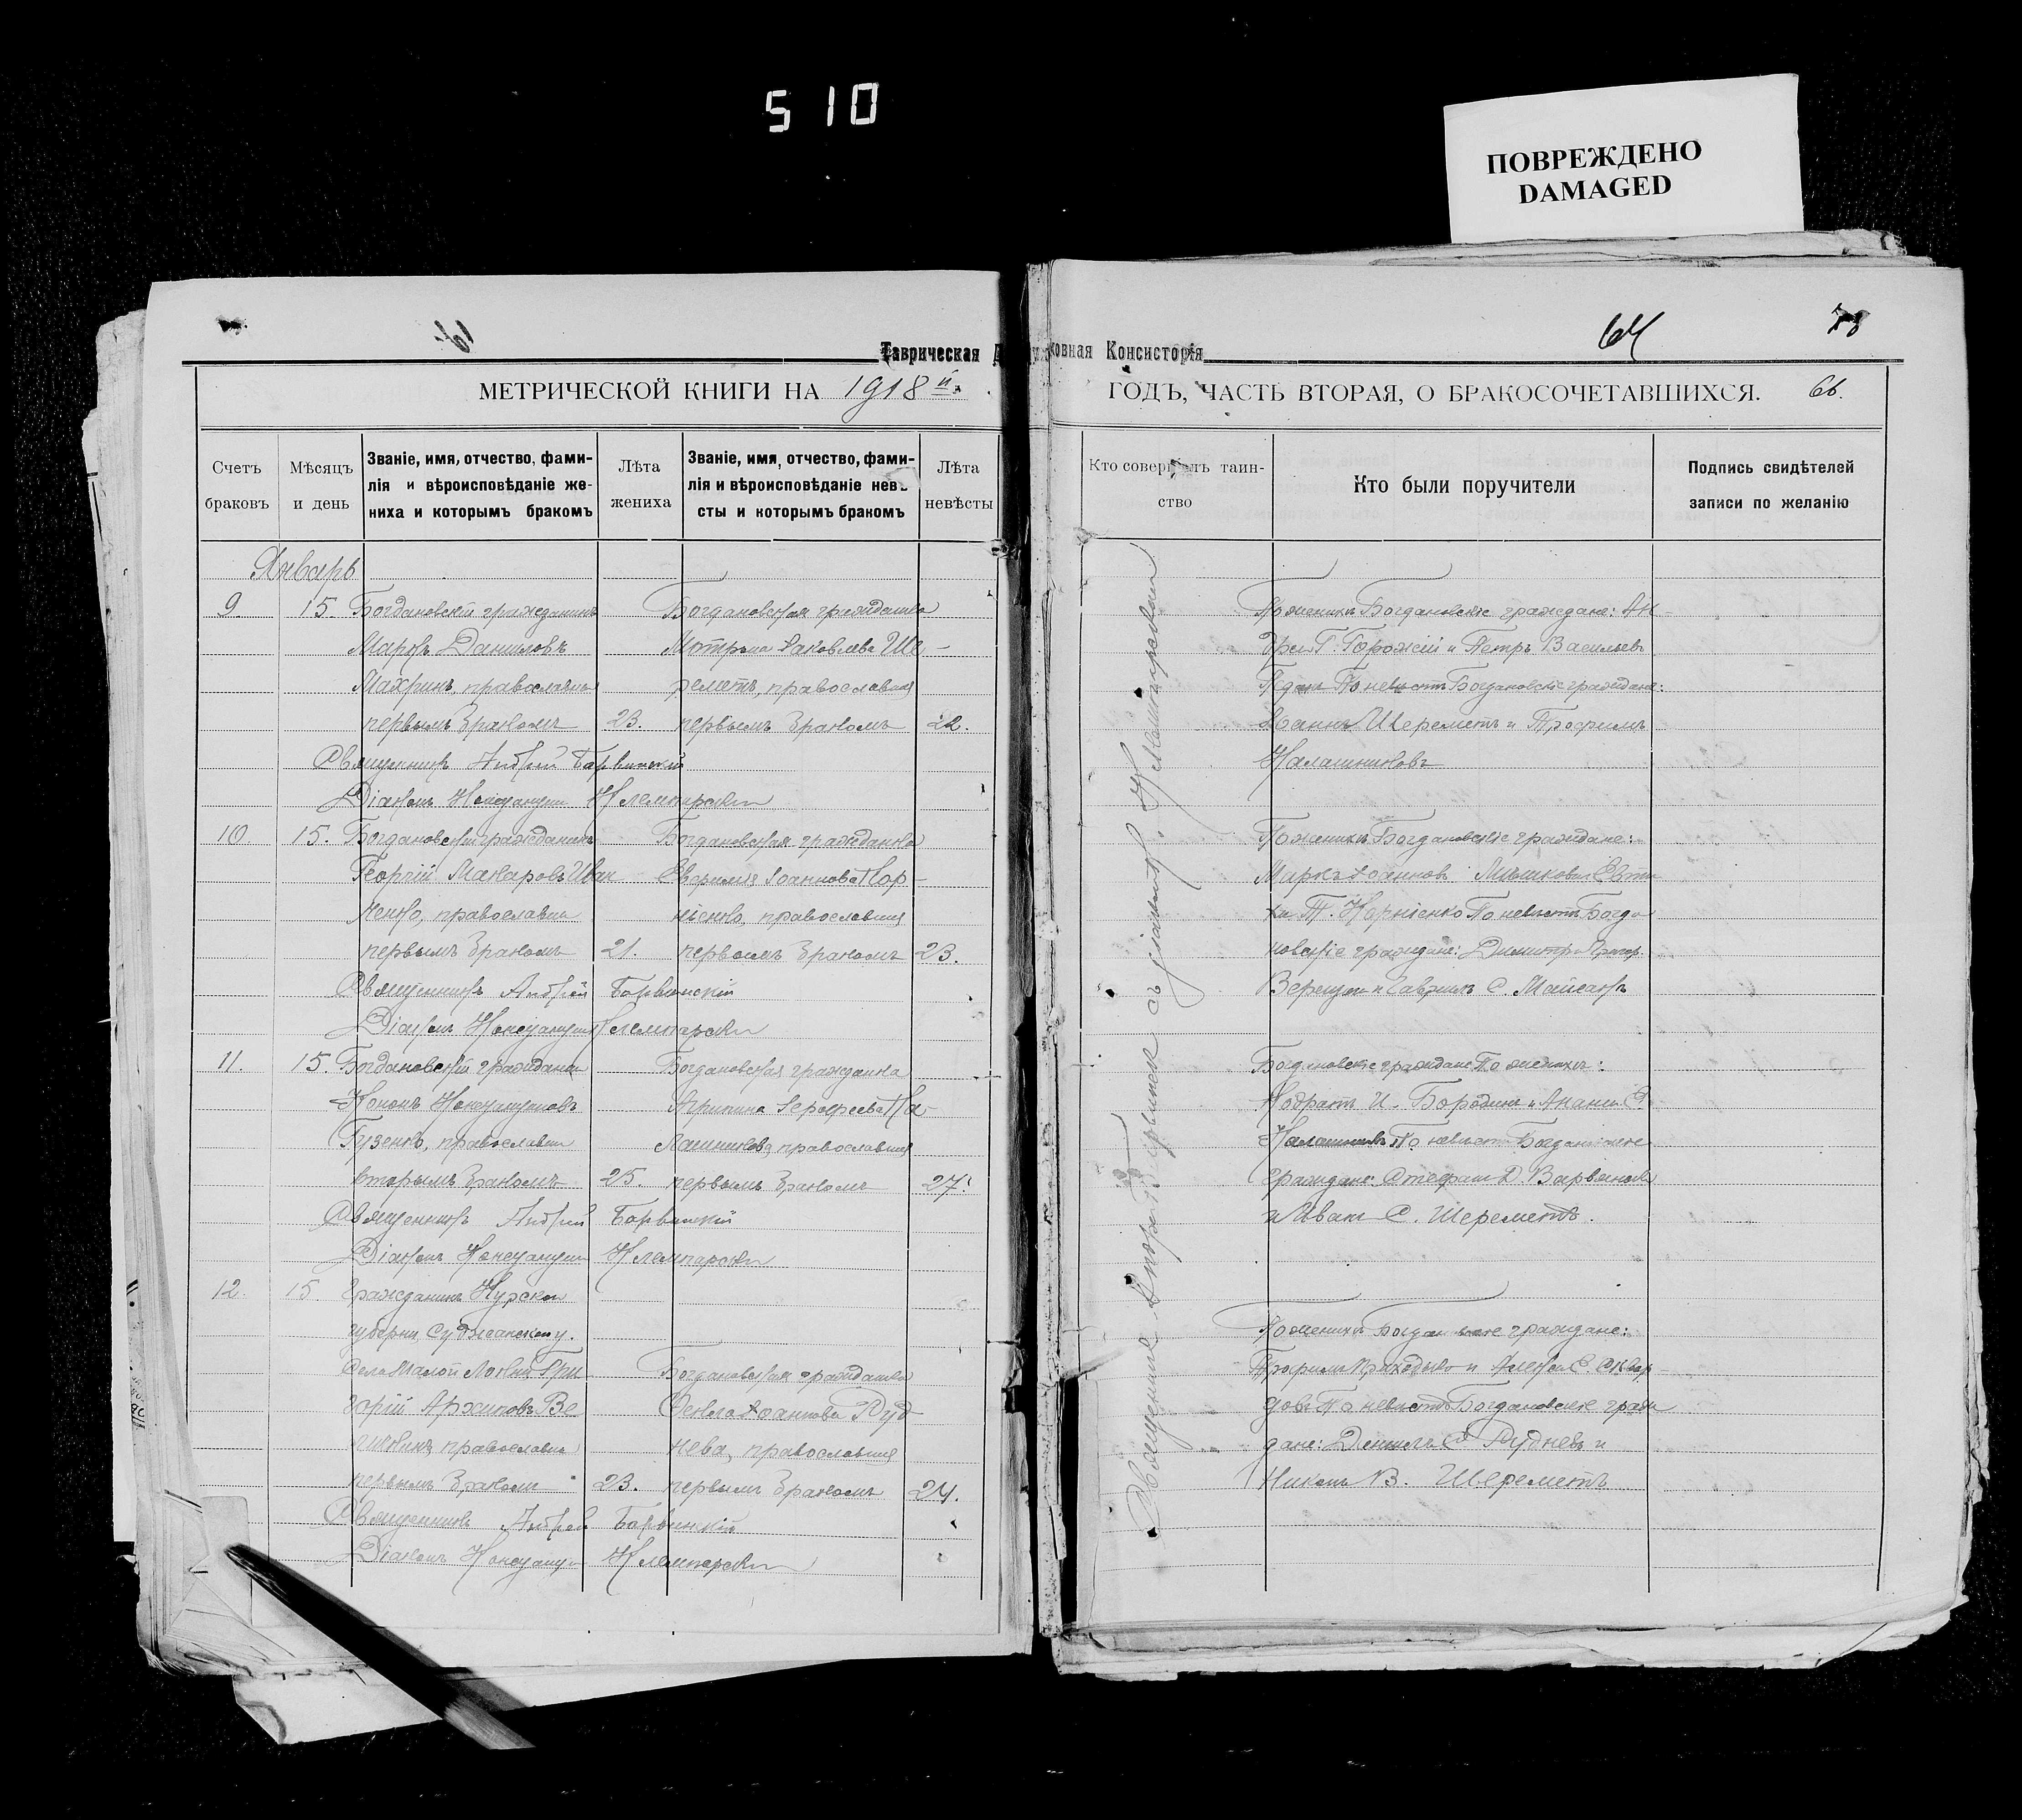 510
ПОВРЕЖДЕНО
DAMAGED
64
Таврическая Духовная Консисторія
МЕТРИЧЕСКОЙ КНИГИ НА 1918 й.
ГОДЪ, ЧАСТЬ ВТОРАЯ, О БРАКОСОЧЕТАВШИХСЯ. 66.
Счетъ браковъ
Мѣсяцъ и день
Званіе, имя, отчество, фами-
лія и вѣроисповѣданіе же-
ниха и которымъ бракомъ
Лѣта жениха
Званіе, имя, отчество, фами-
лія и вѣроисповѣданіе невѣ
сты и которымъ бракомъ
Лѣта невѣсты
Кто совершалъ таин-
ство
Кто были поручители
Подпись свидѣтелей
записи по желанію
Январь
9. 15. Богдановскій гражданинъ
Маркъ Даниловъ
Махринъ, православный
первымъ бракомъ 23.
Богдановская гражданка
Мотрона Яковлева Ше-
реметъ, православная
первымъ бракомъ 22.
Священникъ Андрей Барвинскій
Діаконъ Клемпарскій
По женихѣ Богдановскіе граждане: Ан-
дрей Г. Горожій и Петръ Васильевъ
По невѣстѣ Богдановскіе граждане:
Іоаннъ Шереметъ и Трофимъ
Калашниковъ
10. 15. Богдановскій гражданинъ
Георгій Макаровъ Иван
ненко, православный
первымъ бракомъ 21.
Богдановская гражданка
Евфимія Іоаннова Кор-
ніенко, православная
первымъ бракомъ 23.
Священникъ Андрей Барвинскій
Діаконъ Клемпарскій
По женихѣ Богдановскіе граждане:
Маркъ Іоанновъ
Т. Корніенко По невѣстѣ Богда
новскіе граждане: Димитрій Григор.
и Гавріилъ С. Майсакъ
11. 15. Богдановскій гражданинъ
Кононъ
Гузенко, православный
вторымъ бракомъ 25.
Богдановская гражданка
Агрипина Ка-
лашникова, православная
первымъ бракомъ 27.
Священникъ Андрей Барвинскій
Діаконъ Клемпарскій
Богдановскіе граждане По женихѣ:
Кодратъ И. Бородинъ и Ананій С.
Калашниковъ По невѣстѣ Богдановскіе
граждане: Стефанъ Д.
и Иванъ С. Шереметъ.
12. 15. Гражданинъ Курской
губерніи Суджанскому.
Села Малой Локни Гри
горій Архиповъ Ве
православный
первымъ бракомъ 23.
Богдановская гражданка
Фекла Іоаннова Руд
нева, православная
первымъ бракомъ 24.
Священникъ Андрей Барвинскій
Діаконъ Клемпарскій
По женихѣ Богдановскіе граждане:
Трофимъ Приходько и Алексѣй С.
По невѣстѣ Богдановскіе граж
дане: Даніилъ С. Рудневъ и
В. Шереметъ
Священникъ Андрей Барвинскій съ діакономъ К. Клемпарскимъ